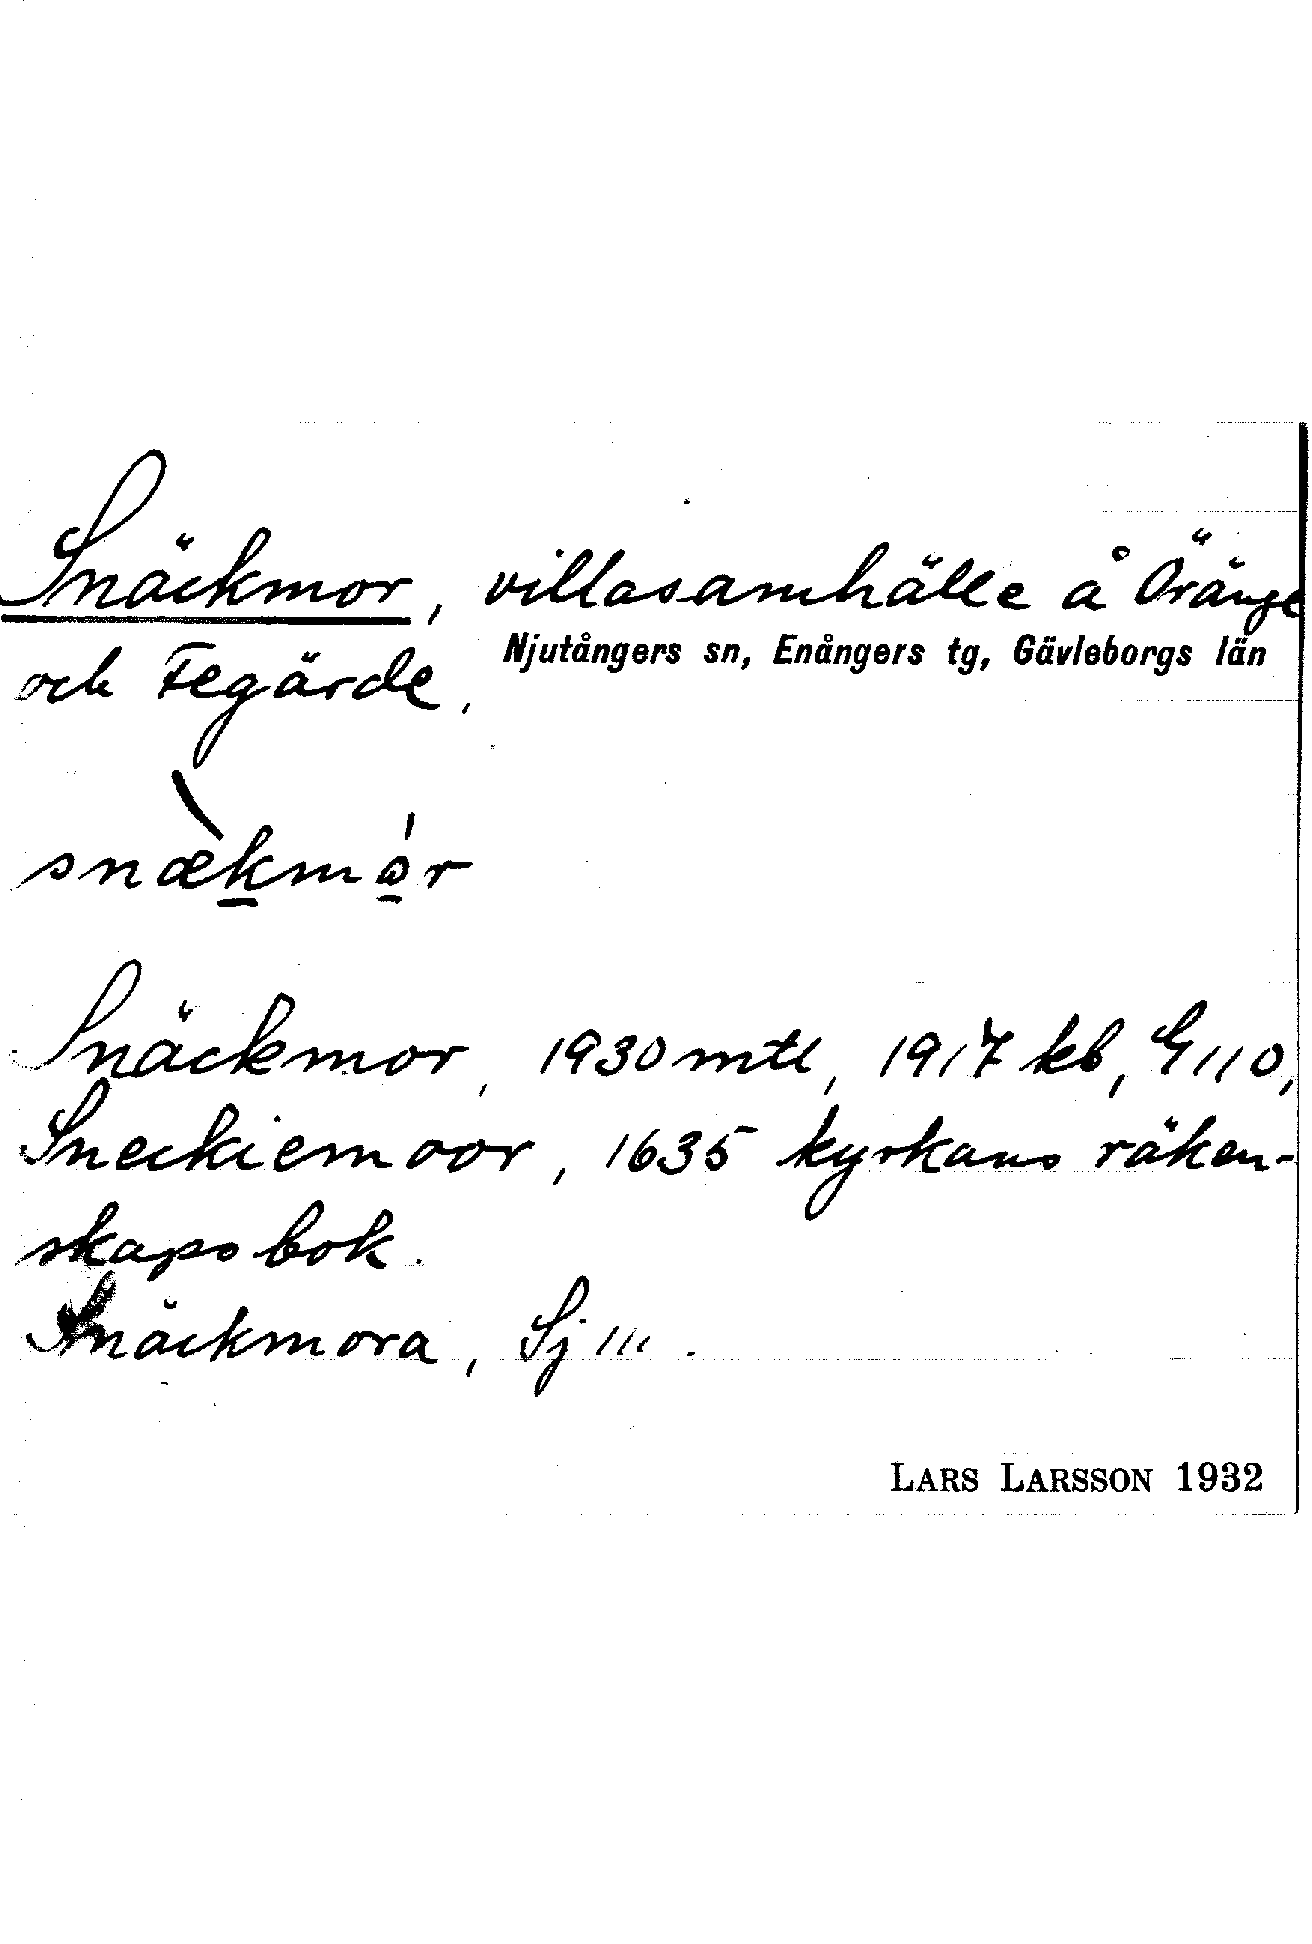 Snäckmor, villasamhälle å Öränge
Njutångers sn, Enångers tg, Gävleborgs län
och Tegärde,
snækmɷ́r
Snäckmor, 1930 mtl, 1917 kb, G 110,
Sneckiemoor, 1635 kyrkans räken-
skapsbok.
Snäckmora, Sj
LARS LARSSON 1932